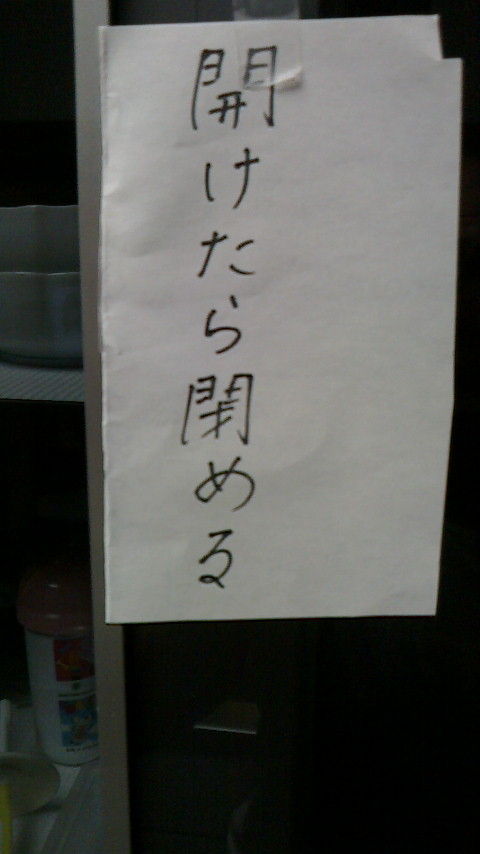 開けたら閉める